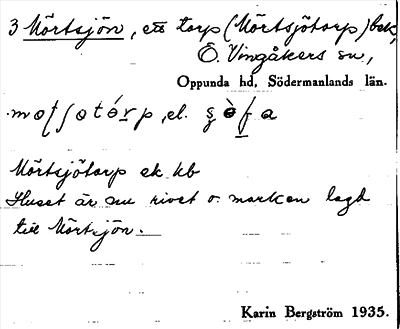 3 Mörtsjön, ett torp (Mörtsjötorp) bek,
Ö. Vingåkers sn,
Oppunda hd, Södermanlands län.
el.
Mörtsjötorp ek kb
Huset är nu rivet o. marken lagd
till Mörtsjön.
Karin Bergström 1935.